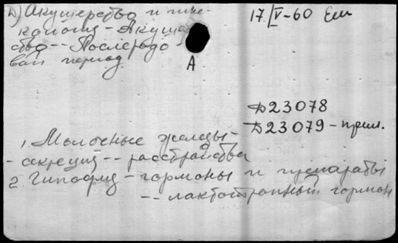 А) Акушерство и гине-
кология - Акушер
ство -- Послеродо
вой период.
17/V-60 Ели
А
Д23078
Д23079 - прил.
1. Молочные железы -
- секреция -- расстройства
2. Гипофиз - гормоны и препараты
-- лактотропный гормон